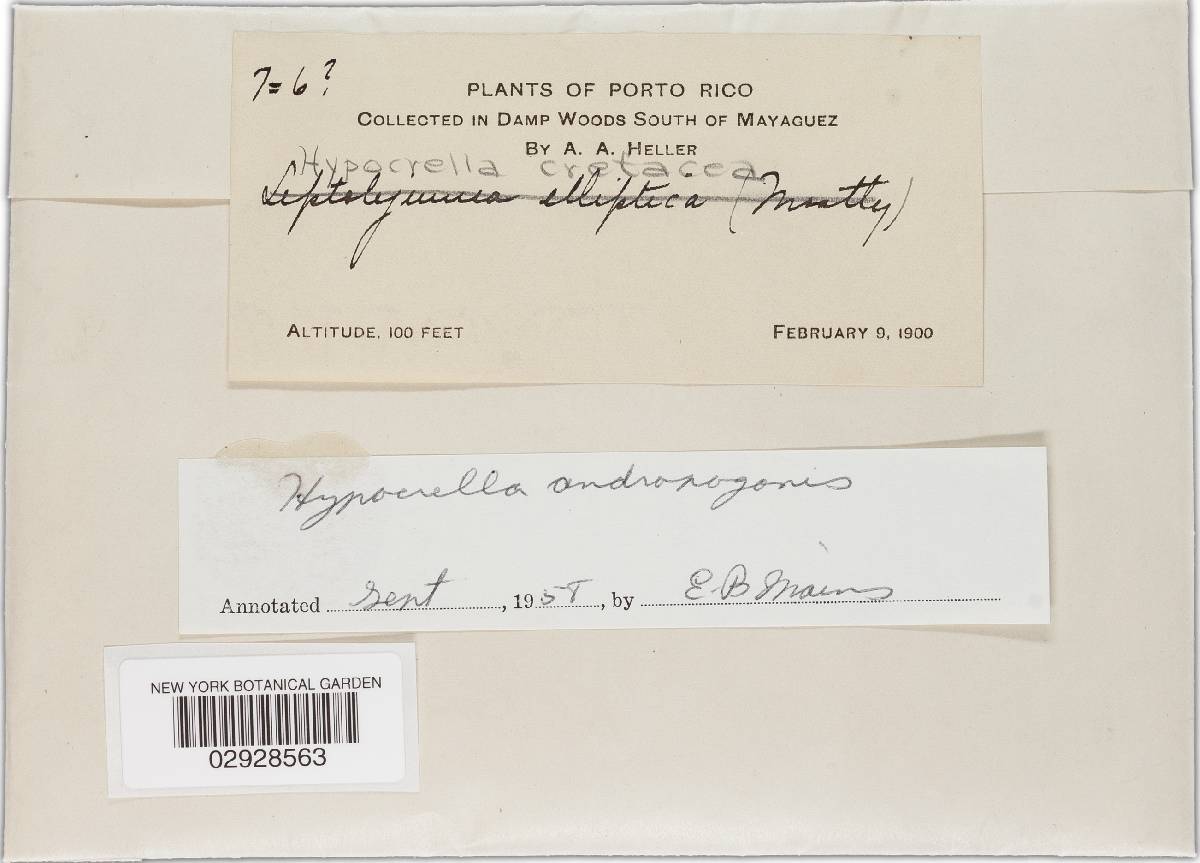 7=6?
PLANTS OF PORTO RICO
COLLECTED IN DAMP WOODS SOUTH OF MAYAGUEZ
BY A. A. HELLER
Hypocrella cretacea
elliptica (Mostly)
ALTITUDE, 100 FEET
FEBRUARY 9, 1900
Hypocrella andropogonis
Annotated Sept, 195, by E B Mains
NEW YORK BOTANICAL GARDEN
02928563